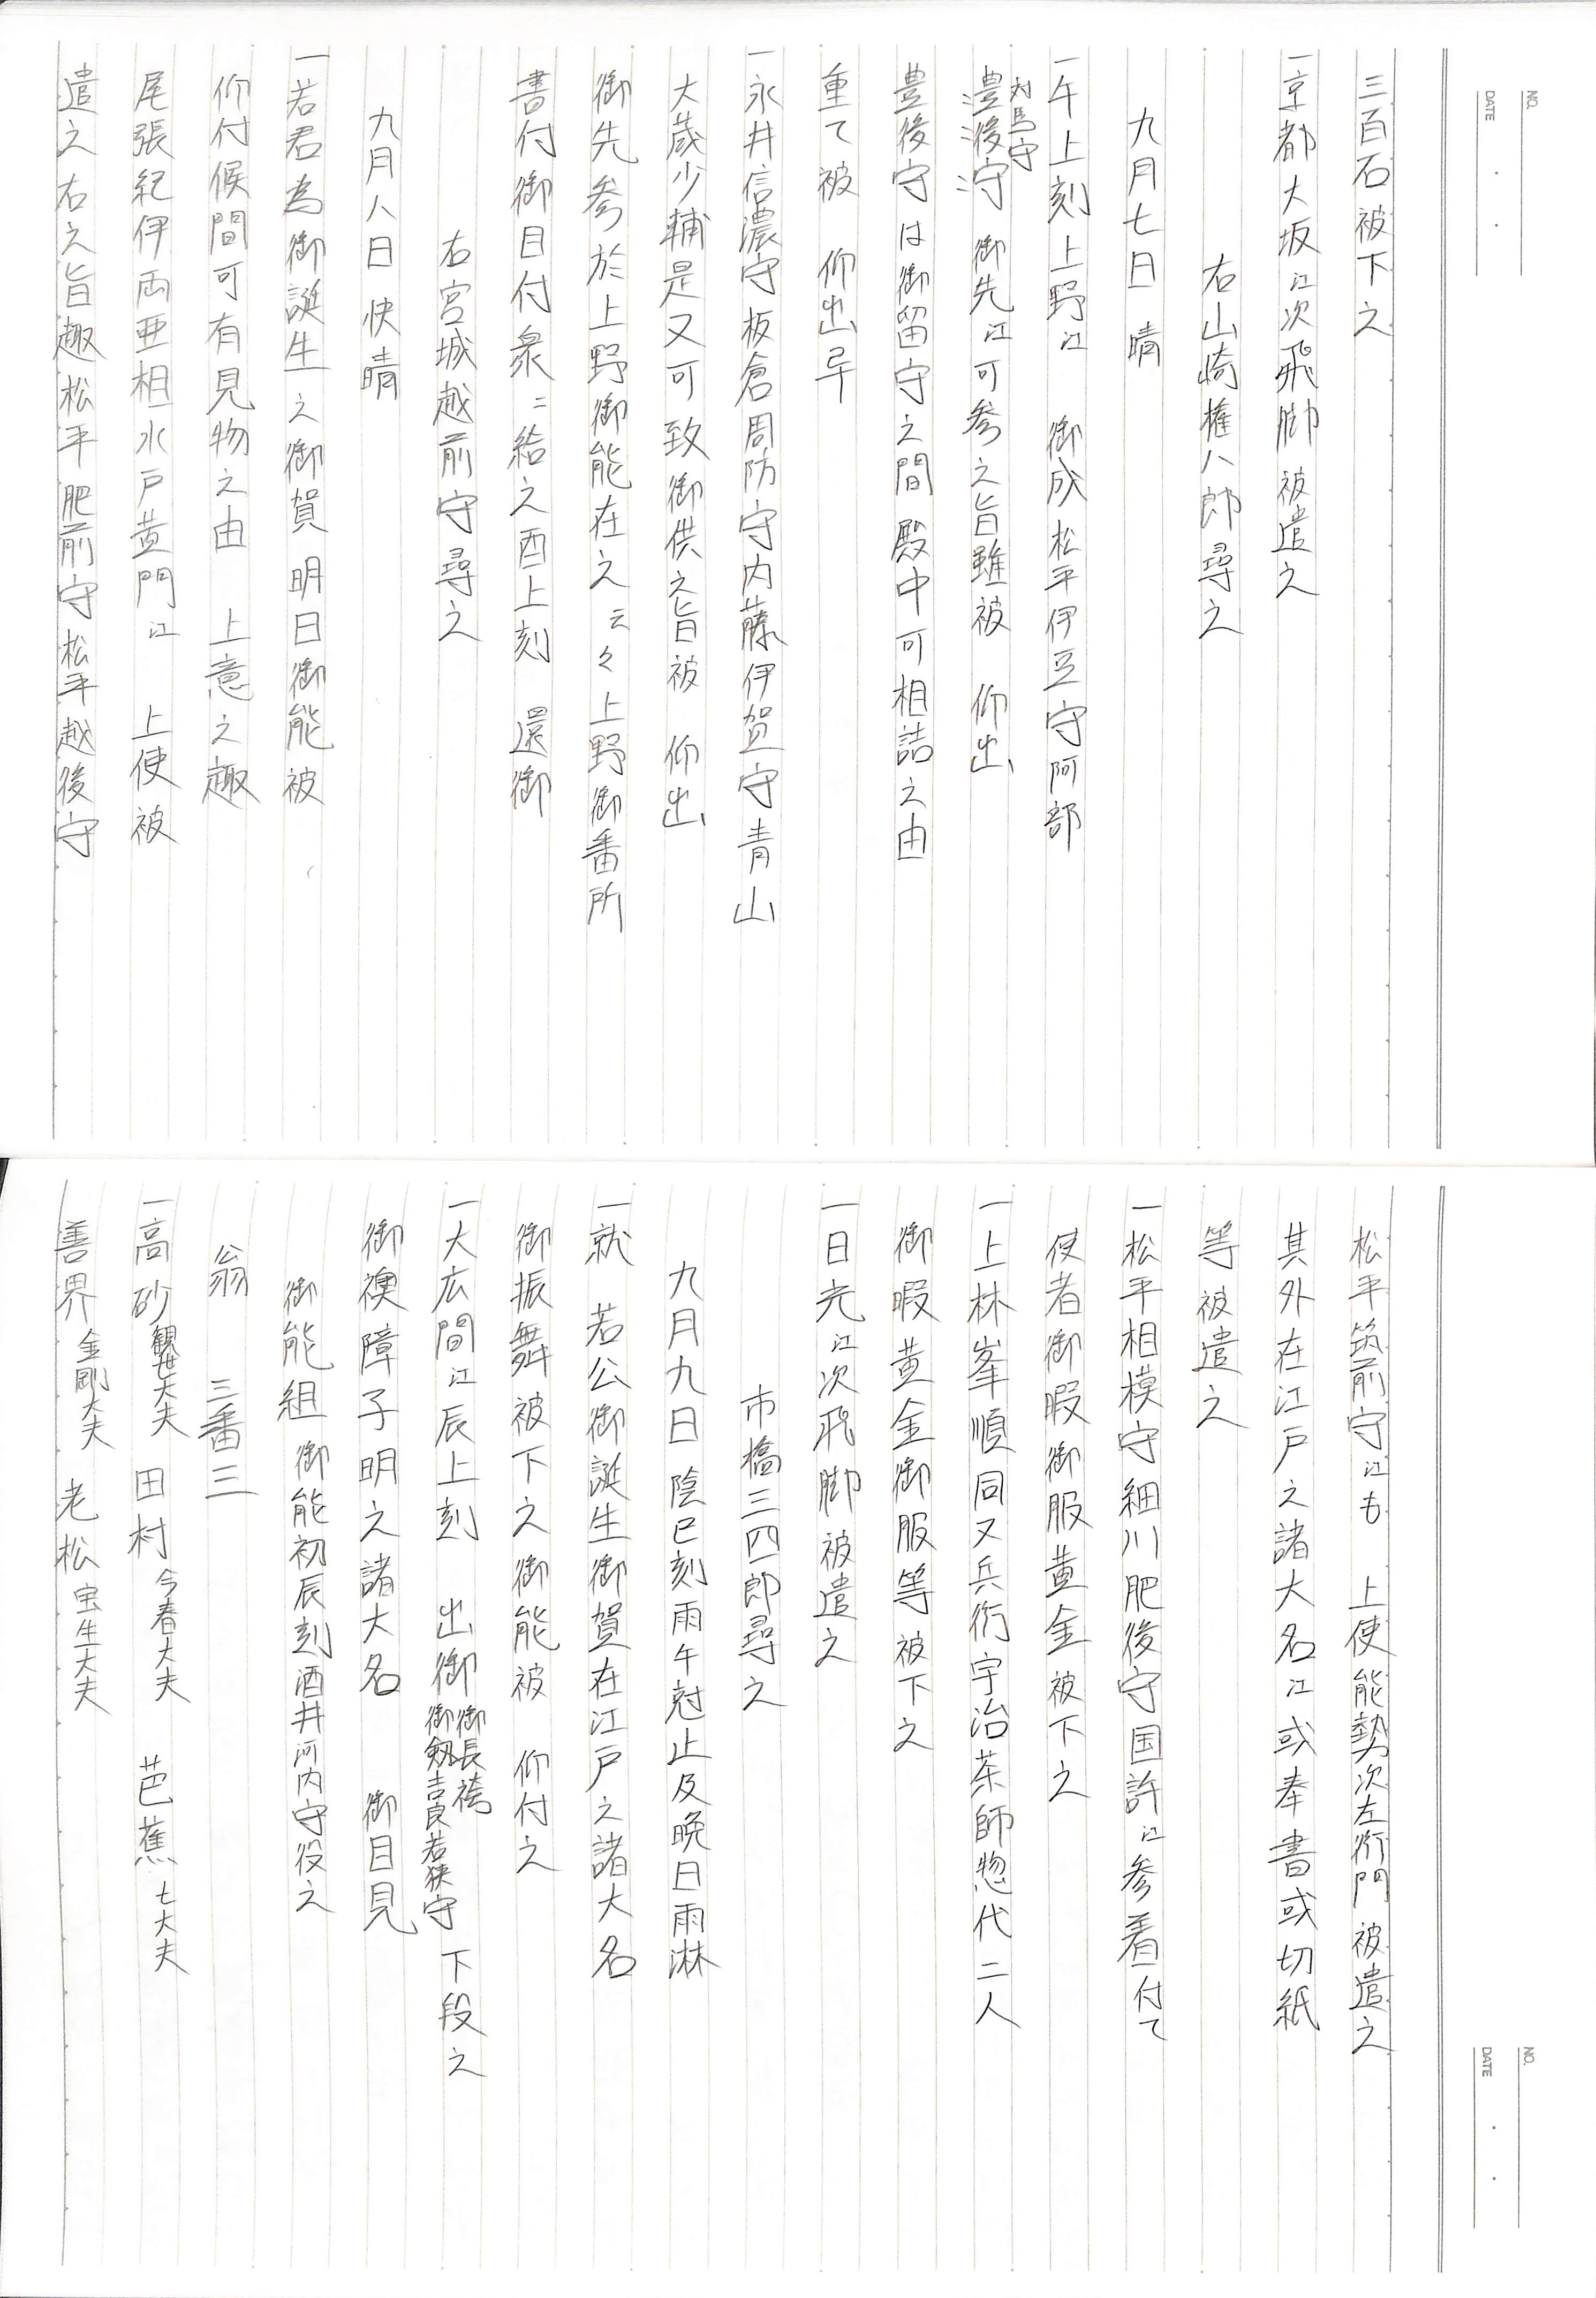 NO.
DATE
三百石被下之
一京都大坂江次飛脚被遣之
右山崎権八郎尋之
九月七日 晴
一午上刻上野江 御成松平伊豆守阿部
対馬守
豊後守 御先江可参之旨雖被 仰出
豊後守は御留守之間殿中可相詰之由
重て被 仰出畢
一永井信濃守板倉周防守内藤伊賀守青山
大蔵少輔是又可致御供之旨被 仰出
御先参於上野御能在之云々上野御番所
書付御目付衆ニ給之酉上刻 還御
右宮城越前守尋之
九月八日 快晴
一若君為御誕生之御賀明日御能被
仰付候間可有見物之由 上意之趣
尾張紀伊両亜相水戸黄門江 上使被
遣之右之旨趣松平肥前守松平越後守
NO.
DATE
松平筑前守江も 上使能勢次左衛門被遣之
其外在江戸之諸大名江或奉書或切紙
等被遣之
一松平相模守細川肥後守国許江参着付て
使者御暇御服黄金被下之
一上林峯順同又兵衛宇治茶師惣代二人
御暇黄金御服等被下之
一日光江次飛脚被遣之
市橋三四郎尋之
九月九日 陰巳刻雨午尅止及晩日雨淋
一就 若公御誕生御賀在江戸之諸大名
御振舞被下之御能被 仰付之
一大広間江辰上刻 出御 御長袴 御剱吉良若狭守 下段之
御襖障子明之諸大名 御目見
御能組 御能初辰刻酒井河内守役之
翁 三番三
一高砂 観世大夫 田村 今春大夫 芭蕉 七大夫
善界 金剛大夫 老松 宝生大夫